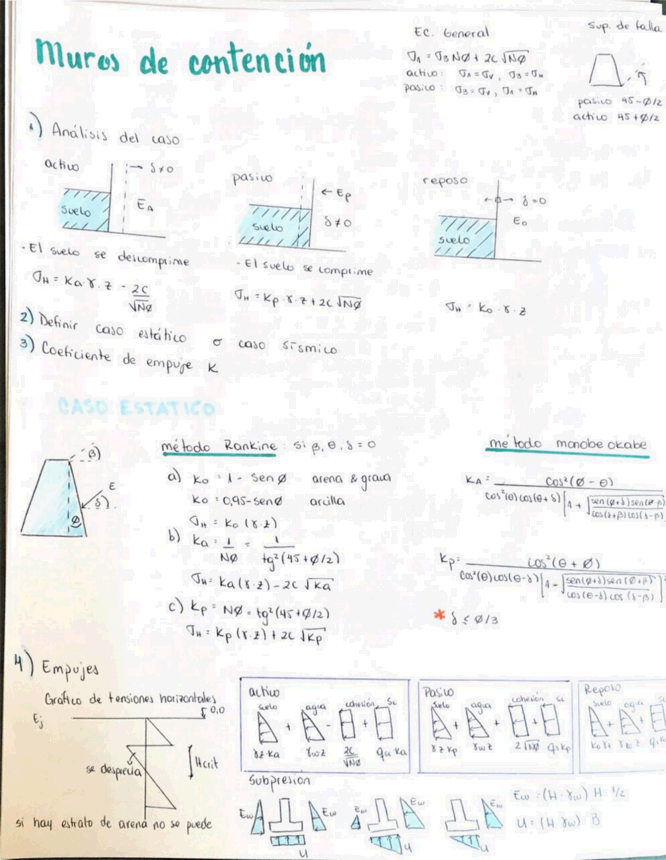 Muros de contención
Ec. General
σ₁ = σ₃ NØ + 2c √NØ
activo: σ₁ = σv, σ₃ = σH
pasivo: σ₃ = σv, σ₁ = σH
Sup. de falla
pasivo 45-Ø/2
activo 45+Ø/2
1) Análisis del caso
activo
→ δ≠0
EA
suelo
- El suelo se descomprime
σH = Ka·γ·z - 2c/√NØ
pasivo
← Ep
δ≠0
suelo
- El suelo se comprime
σH = Kp·γ·z + 2c √NØ
reposo
δ=0
E₀
suelo
σH = K₀·γ·z
2) Definir caso estático o caso sísmico
3) Coeficiente de empuje K
CASO ESTATICO
β)
E
δ)
método Rankine: si β, θ, δ = 0
a) K₀ = 1 - senØ arena & grava
K₀ = 0,95 - senØ arcilla
σH = K₀ (γ·z)
b) Ka = 1/NØ = 1/tg²(45+Ø/2)
σH = Ka(γ·z) - 2c √Ka
c) Kp = NØ = tg²(45+Ø/2)
σH = Kp(γ·z) + 2c √Kp
método monobe okabe
KA = cos²(Ø-θ)
Kp = cos²(θ+Ø)
* δ ≤ Ø/3
4) Empujes
Gráfico de tensiones horizontales
Ej
0,0
se desprecia
Hcrit
si hay estrato de arena no se puede
activo
suelo + agua - cohesión + s/c
γz Ka γwz 2c/√NØ q·Ka
Pasivo
suelo agua cohesión s/c
γz Kp γwz 2√NØ q·Kp
Reposo
suelo agua
Subpresion
Ew Ew
U
Ew Ew
U
Ew
U
Ew = (H·γw) H·1/2
U = (H γw) B